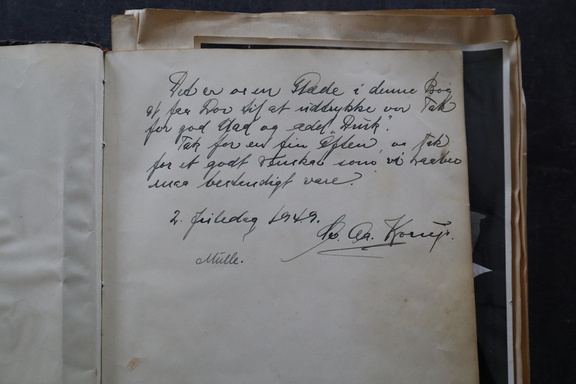 Det er os en Glæde i denne Bog
at faa Lov til at udtrykke vor Tak
for god Mad og ædel "Drik".
Tak for en fin Aften, og Tak
for et godt Venskab som vi haaber
maa bestandigt vare.
2. Juledag 1949.
Chr. Korup.
Mulle.